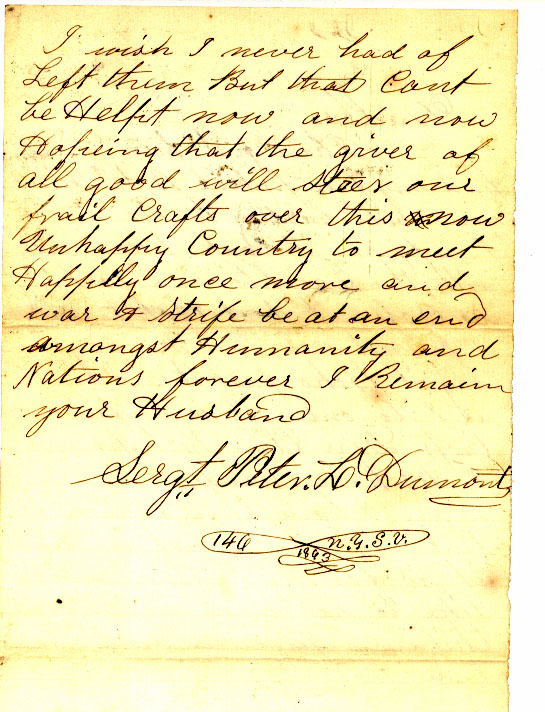 I wish I never had of
Left them But that Cant
be Helpt now and now
Hopeing that the giver of
all good will steer our
frail Crafts over this now
Unhappy Country to meet
Happily once more and
war & strife be at an end
amongst Humanity and
Nations forever I Remain
your Husband
Sergt Peter. L. Dumont
146 N.Y.S.V.
1863